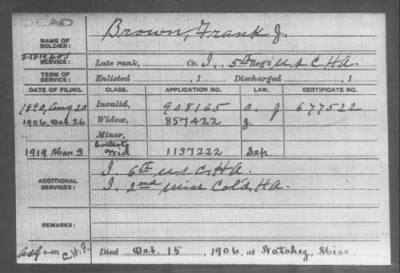 DEAD
NAME OF SOLDIER: Brown, Frank J.
SERVICE: Late rank, Co. I, 5th Reg't U.S.C.H.A.
TERM OF SERVICE: Enlisted , 1 Discharged , 1
DATE OF FILING. CLASS. APPLICATION NO. LAW. CERTIFICATE NO.
1890, Aug 20 Invalid, 908165 a. J 677522
1906, Oct. 26 Widow, 857422 J.
Minor,
1919 Mar. 3 Wid 1137222 Sep.
ADDITIONAL SERVICES: I. 6th U.S.C.H.A.
I. 2nd Miss Col'd H.A.
REMARKS:
C.H.F. Died Oct. 15, 1906, at Natchez, Miss.